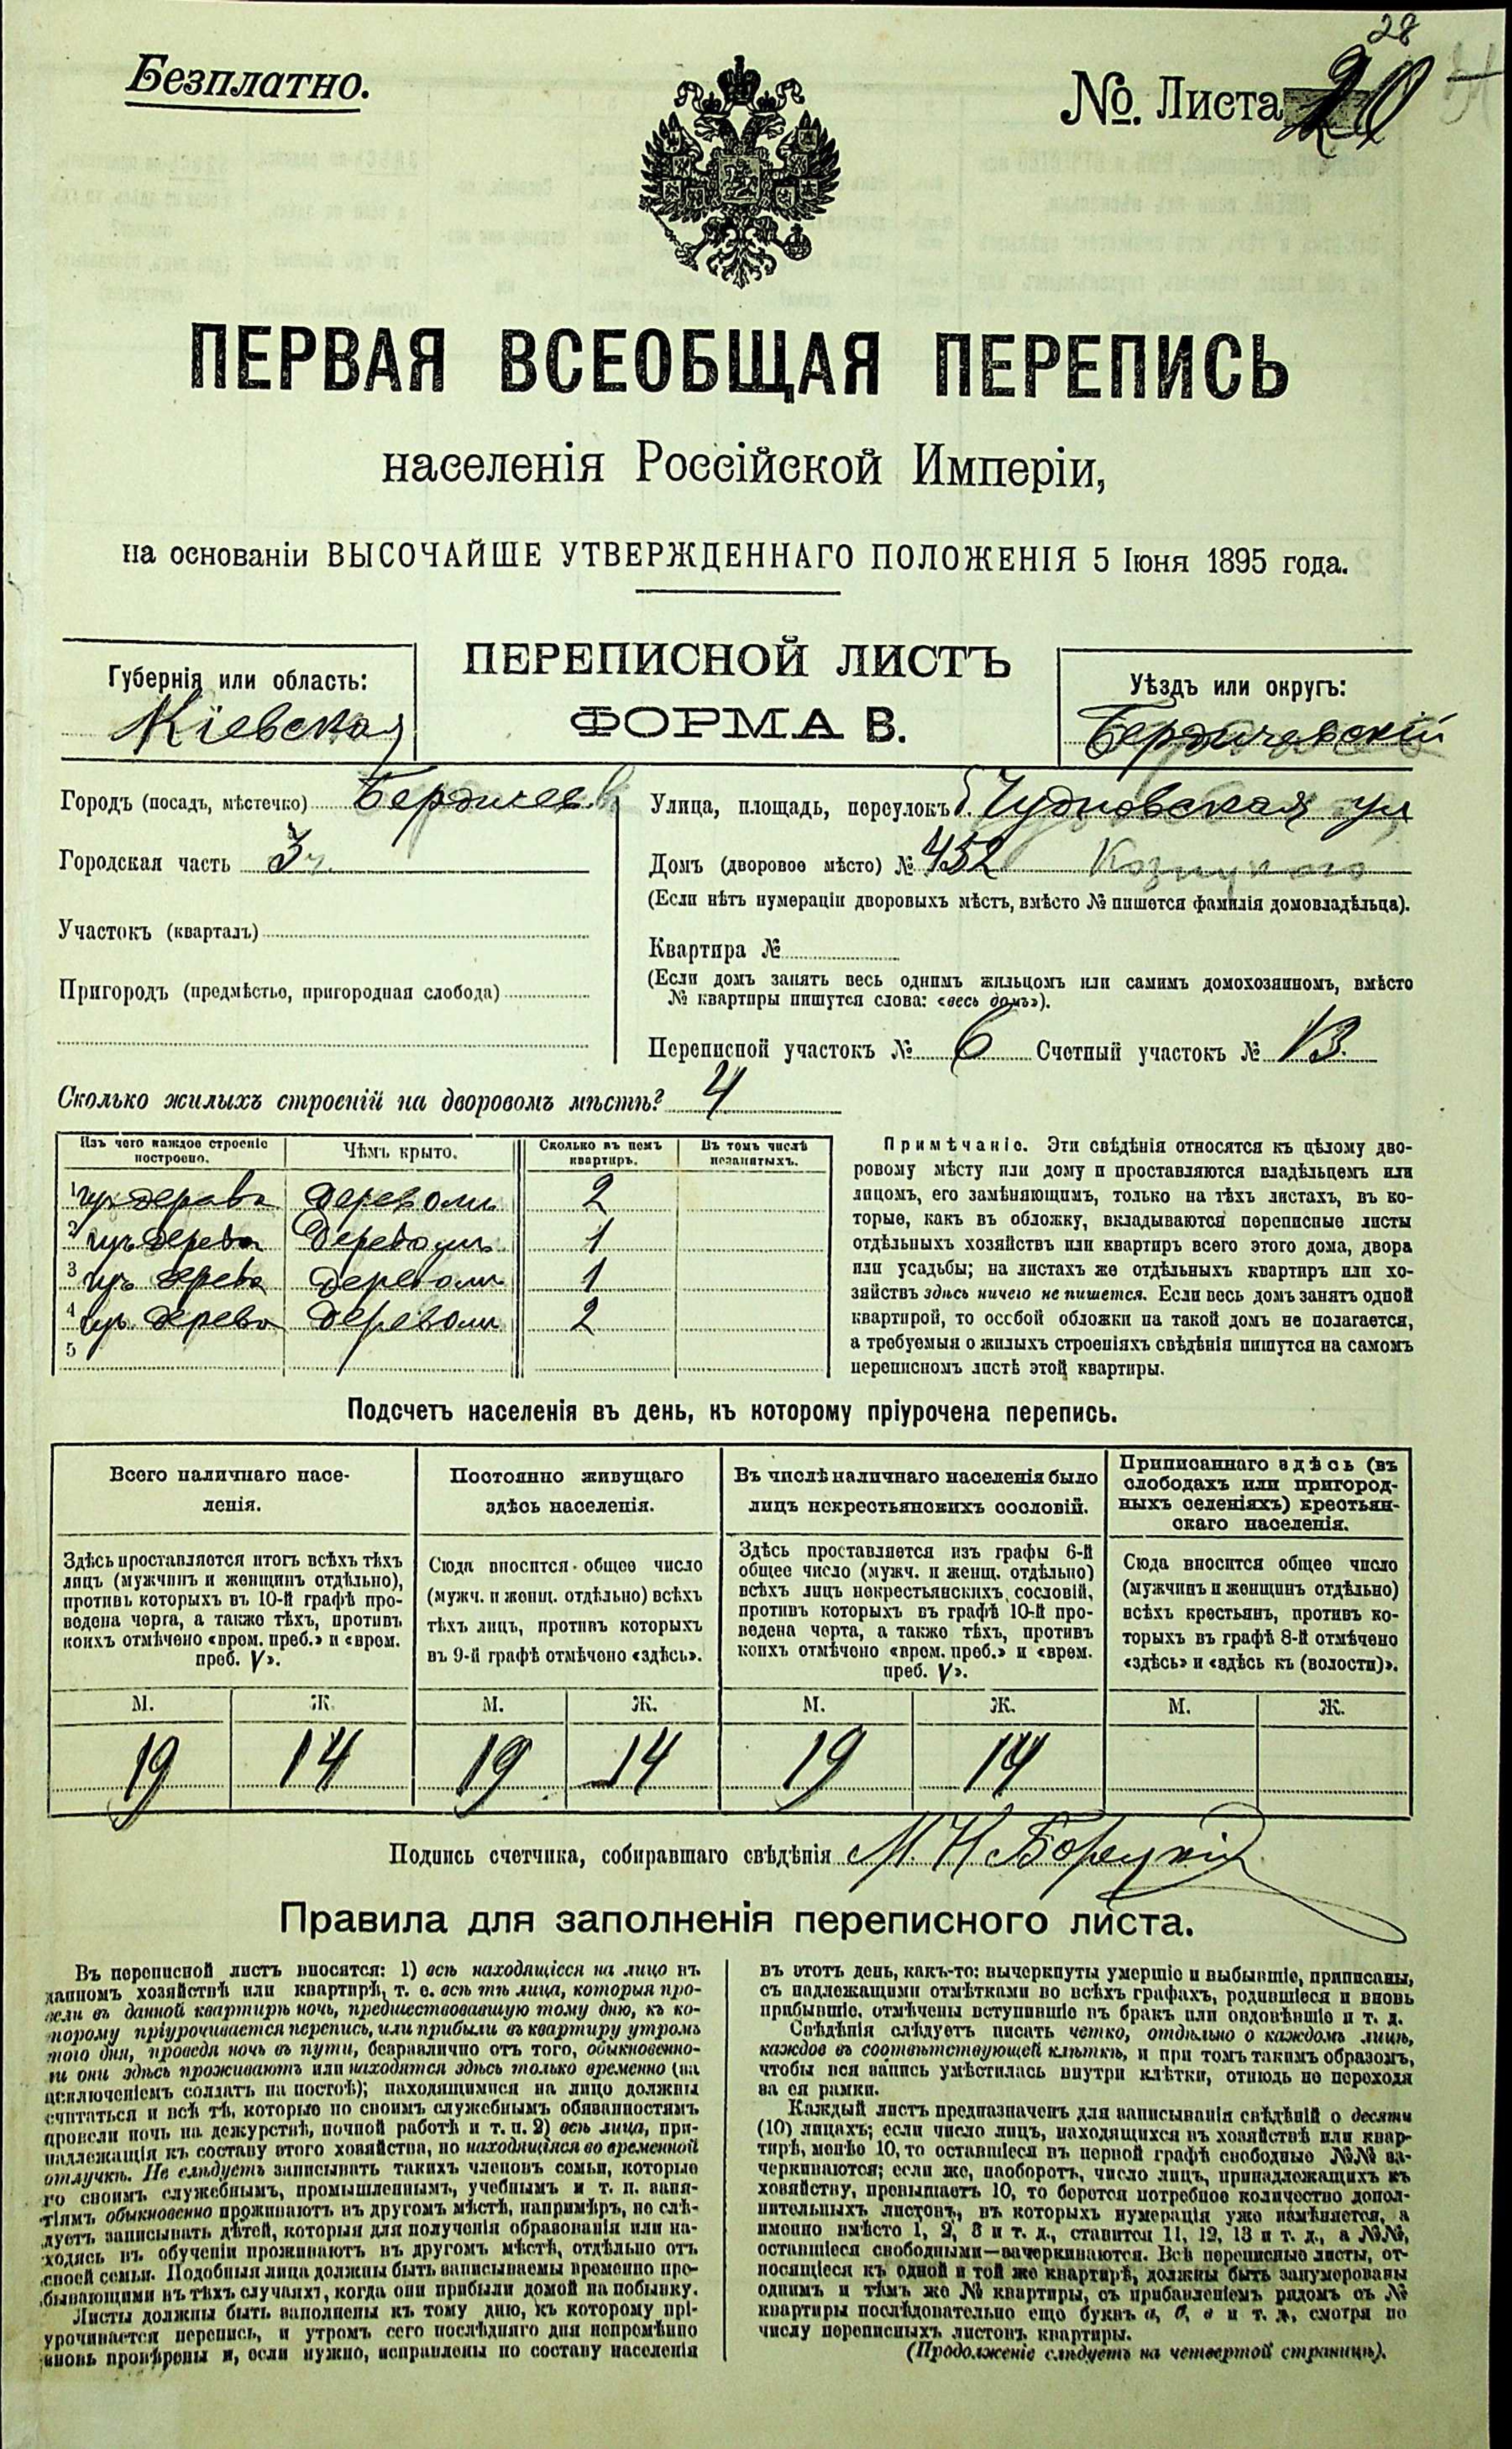 28
Безплатно.
№. Листа 20
ПЕРВАЯ ВСЕОБЩАЯ ПЕРЕПИСЬ
населенія Россійской Имперіи,
на основаніи ВЫСОЧАЙШЕ УТВЕРЖДЕННАГО ПОЛОЖЕНІЯ 5 Іюня 1895 года.
ПЕРЕПИСНОЙ ЛИСТЪ
ФОРМА В.
Губернія или область:
Кіевская
Уѣздъ или округъ:
Бердичевскій
Городъ (посадъ, мѣстечко) Бердичев
Городская часть 3
Участокъ (кварталъ)
Пригородъ (предмѣстье, пригородная слобода)
Улица, площадь, переулокъ б. Чудновская ул
Домъ (дворовое мѣсто) № 452
(Если нѣтъ нумераціи дворовыхъ мѣстъ, вмѣсто № пишется фамилія домовладѣльца).
Квартира №
(Если домъ занятъ весь однимъ жильцомъ или самимъ домохозяиномъ, вмѣсто
№ квартиры пишутся слова: «весь домъ»).
Переписной участокъ № 6 Счетный участокъ № 13.
Сколько жилыхъ строеній на дворовомъ мѣстѣ? 4
Изъ чего каждое строеніе
построено.
Чѣмъ крыто.
Сколько въ немъ
квартиръ.
Въ томъ числѣ
незанятыхъ.
1 изъ дерева деревомъ 2
2 изъ дерева деревомъ 1
3 изъ дерева деревомъ 1
4 изъ дерева деревомъ 2
5
Примѣчаніе. Эти свѣдѣнія относятся къ цѣлому дво-
ровому мѣсту или дому и проставляются владѣльцемъ или
лицомъ, его замѣняющимъ, только на тѣхъ листахъ, въ ко-
торые, какъ въ обложку, вкладываются переписные листы
отдѣльныхъ хозяйствъ или квартиръ всего этого дома, двора
или усадьбы; на листахъ же отдѣльныхъ квартиръ или хо-
зяйствъ здѣсь ничего не пишется. Если весь домъ занятъ одной
квартирой, то особой обложки на такой домъ не полагается,
а требуемыя о жилыхъ строеніяхъ свѣдѣнія пишутся на самомъ
переписномъ листѣ этой квартиры.
Подсчетъ населенія въ день, къ которому пріурочена перепись.
Всего наличнаго насе-
ленія.
Здѣсь проставляется итогъ всѣхъ тѣхъ
лицъ (мужчинъ и женщинъ отдѣльно),
противъ которыхъ въ 10-й графѣ про-
ведена черта, а также тѣхъ, противъ
коихъ отмѣчено «врем. преб.» и «врем.
преб. V».
Постоянно живущаго
здѣсь населенія.
Сюда вносится общее число
(мужч. и женщ. отдѣльно) всѣхъ
тѣхъ лицъ, противъ которыхъ
въ 9-й графѣ отмѣчено «здѣсь».
Въ числѣ наличнаго населенія было
лицъ некрестьянскихъ сословій.
Здѣсь проставляется изъ графы 6-й
общее число (мужч. и женщ. отдѣльно)
всѣхъ лицъ некрестьянскихъ сословій,
противъ которыхъ въ графѣ 10-й про-
ведена черта, а также тѣхъ, противъ
коихъ отмѣчено «врем. преб.» и «врем.
преб. V».
Приписаннаго здѣсь (въ
слободахъ или пригород-
ныхъ селеніяхъ) крестьян-
скаго населенія.
Сюда вносится общее число
(мужчинъ и женщинъ отдѣльно)
всѣхъ крестьянъ, противъ ко-
торыхъ въ графѣ 8-й отмѣчено
«здѣсь» и «здѣсь къ (волости)».
М. Ж. М. Ж. М. Ж. М. Ж.
19 14 19 14 19 14
Подпись счетчика, собиравшаго свѣдѣнія М. Н. Борецкій
Правила для заполненія переписного листа.
Въ переписной листъ вносятся: 1) всѣ находящіеся на лицо въ
данномъ хозяйствѣ или квартирѣ, т. е. всѣ тѣ лица, которыя про-
вели въ данной квартирѣ ночь, предшествовавшую тому дню, къ ко-
торому пріурочивается перепись, или прибыли въ квартиру утромъ
того дня, проведя ночь въ пути, безразлично отъ того, обыкновенно-
ли они здѣсь проживаютъ или находятся здѣсь только временно (за
исключеніемъ солдатъ на постоѣ); находящимися на лицо должны
считаться и всѣ тѣ, которые по своимъ служебнымъ обязанностямъ
провели ночь на дежурствѣ, ночной работѣ и т. п. 2) всѣ лица, при-
надлежащія къ составу этого хозяйства, но находящіяся во временной
отлучкѣ. Не слѣдуетъ записывать такихъ членовъ семьи, которые
по своимъ служебнымъ, промышленнымъ, учебнымъ и т. п. заня-
тіямъ обыкновенно проживаютъ въ другомъ мѣстѣ, напримѣръ, не слѣ-
дуетъ записывать дѣтей, которыя для полученія образованія или на-
ходясь въ обученіи проживаютъ въ другомъ мѣстѣ, отдѣльно отъ
своей семьи. Подобныя лица должны быть записываемы временно пре-
бывающими въ тѣхъ случаяхъ, когда они прибыли домой на побывку.
Листы должны быть заполнены къ тому дню, къ которому прі-
урочивается перепись, и утромъ сего послѣдняго дня непремѣнно
вновь провѣрены и, если нужно, исправлены по составу населенія
въ этотъ день, какъ-то: вычеркнуты умершіе и выбывшіе, приписаны,
съ надлежащими отмѣтками во всѣхъ графахъ, родившіеся и вновь
прибывшіе, отмѣчены вступившіе въ бракъ или овдовѣвшіе и т. д.
Свѣдѣнія слѣдуетъ писать четко, отдѣльно о каждомъ лицѣ,
каждое въ соотвѣтствующей клѣткѣ, и при томъ такимъ образомъ,
чтобы вся запись умѣстилась внутри клѣтки, отнюдь не переходя
за ея рамки.
Каждый листъ предназначенъ для записыванія свѣдѣній о десяти
(10) лицахъ; если число лицъ, находящихся въ хозяйствѣ или квар-
тирѣ, менѣе 10, то оставшіеся въ первой графѣ свободные №№ за-
черкиваются; если же, наоборотъ, число лицъ, принадлежащихъ къ
хозяйству, превышаетъ 10, то берется потребное количество допол-
нительныхъ листовъ, въ которыхъ нумерація уже измѣняется, а
именно вмѣсто 1, 2, 3 и т. д., ставится 11, 12, 13 и т. д., а №№,
оставшіеся свободными—зачеркиваются. Всѣ переписные листы, от-
носящіеся къ одной и той же квартирѣ, должны быть занумерованы
однимъ и тѣмъ же № квартиры, съ прибавленіемъ рядомъ съ №
квартиры послѣдовательно еще буквъ а, б, в и т. д., смотря по
числу переписныхъ листовъ квартиры.
(Продолженіе слѣдуетъ на четвертой страницѣ).